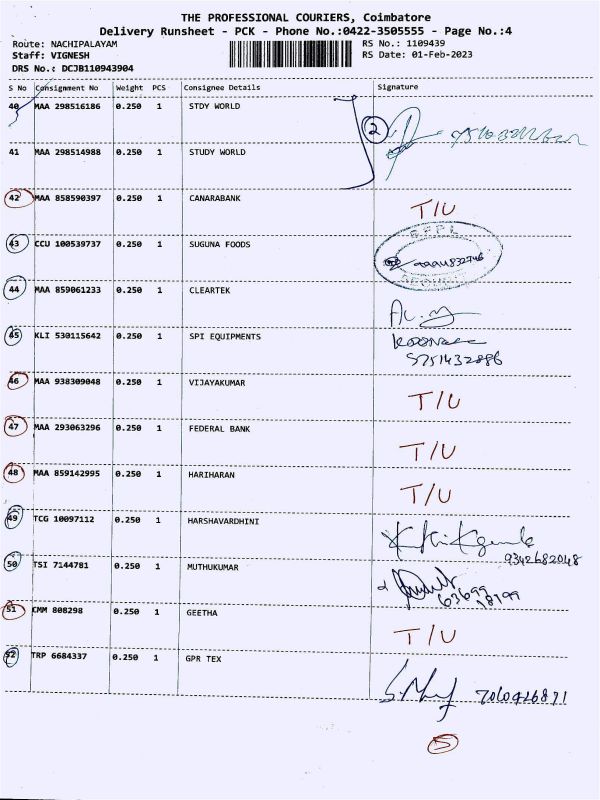 THE PROFESSIONAL COURIERS, Coimbatore
Delivery Runsheet - PCK - Phone No.:0422-3505555 - Page No.:4
Route: NACHIPALAYAM RS No.: 1109439
Staff: VIGNESH RS Date: 01-Feb-2023
DRS No.: DCJB110943904
S No Consignment No Weight PCS Consignee Details Signature
40 MAA 298516186 0.250 1 STDY WORLD
2
41 MAA 298514988 0.250 1 STUDY WORLD
42 MAA 858590397 0.250 1 CANARABANK T/U
43 CCU 100539737 0.250 1 SUGUNA FOODS
44 MAA 859061233 0.250 1 CLEARTEK
45 KLI 530115642 0.250 1 SPI EQUIPMENTS
9751432886
46 MAA 938309048 0.250 1 VIJAYAKUMAR T/U
47 MAA 293063296 0.250 1 FEDERAL BANK T/U
48 MAA 859142995 0.250 1 HARIHARAN T/U
49 TCG 10097112 0.250 1 HARSHAVARDHINI
9342682048
50 TSI 7144781 0.250 1 MUTHUKUMAR
63699
18199
51 CMM 808298 0.250 1 GEETHA T/U
52 TRP 6684337 0.250 1 GPR TEX
7010426871
5